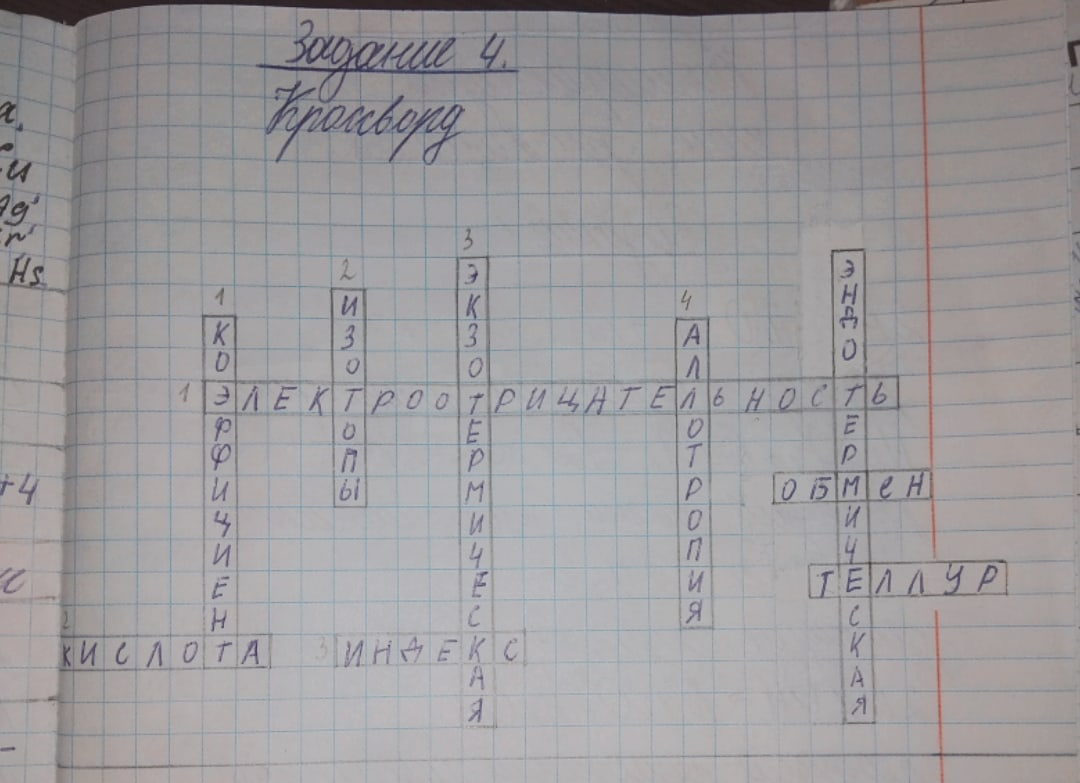 Задание 4.
Кроссворд
1 КОЭФФИЦИЕНТ
2 ИЗОТОПЫ
3 ЭКЗОТЕРМИЧЕСКАЯ
4 АЛЛОТРОПИЯ
ЭНДОТЕРМИЧЕСКАЯ
1 ЭЛЕКТРООТРИЦАТЕЛЬНОСТЬ
ОБМЕН
ТЕЛЛУР
2 КИСЛОТА
3 ИНДЕКС
Hs
+4